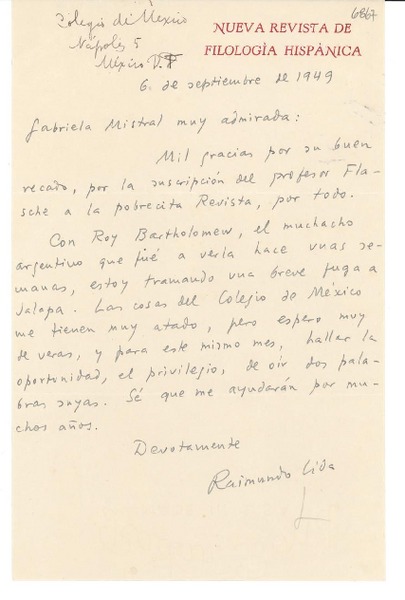 6867
Colegio de México
Nápoles 5
México D.F
NUEVA REVISTA DE
FILOLOGÍA HISPÁNICA
6 de septiembre de 1949
Gabriela Mistral muy admirada:
Mil gracias por su buen
recado, por la suscripción del profesor Fla-
sche a la pobrecita Revista, por todo.
Con Roy Bartholomew, el muchacho
argentino que fué a verla hace unas se-
manas, estoy tramando una breve fuga a
Jalapa. Las cosas del Colegio de México
me tienen muy atado, pero espero muy
de veras, y para este mismo mes, hallar la
oportunidad, el privilegio, de oír dos pala-
bras suyas. Sé que me ayudarán por mu-
chos años.
Devotamente
Raimundo Lida